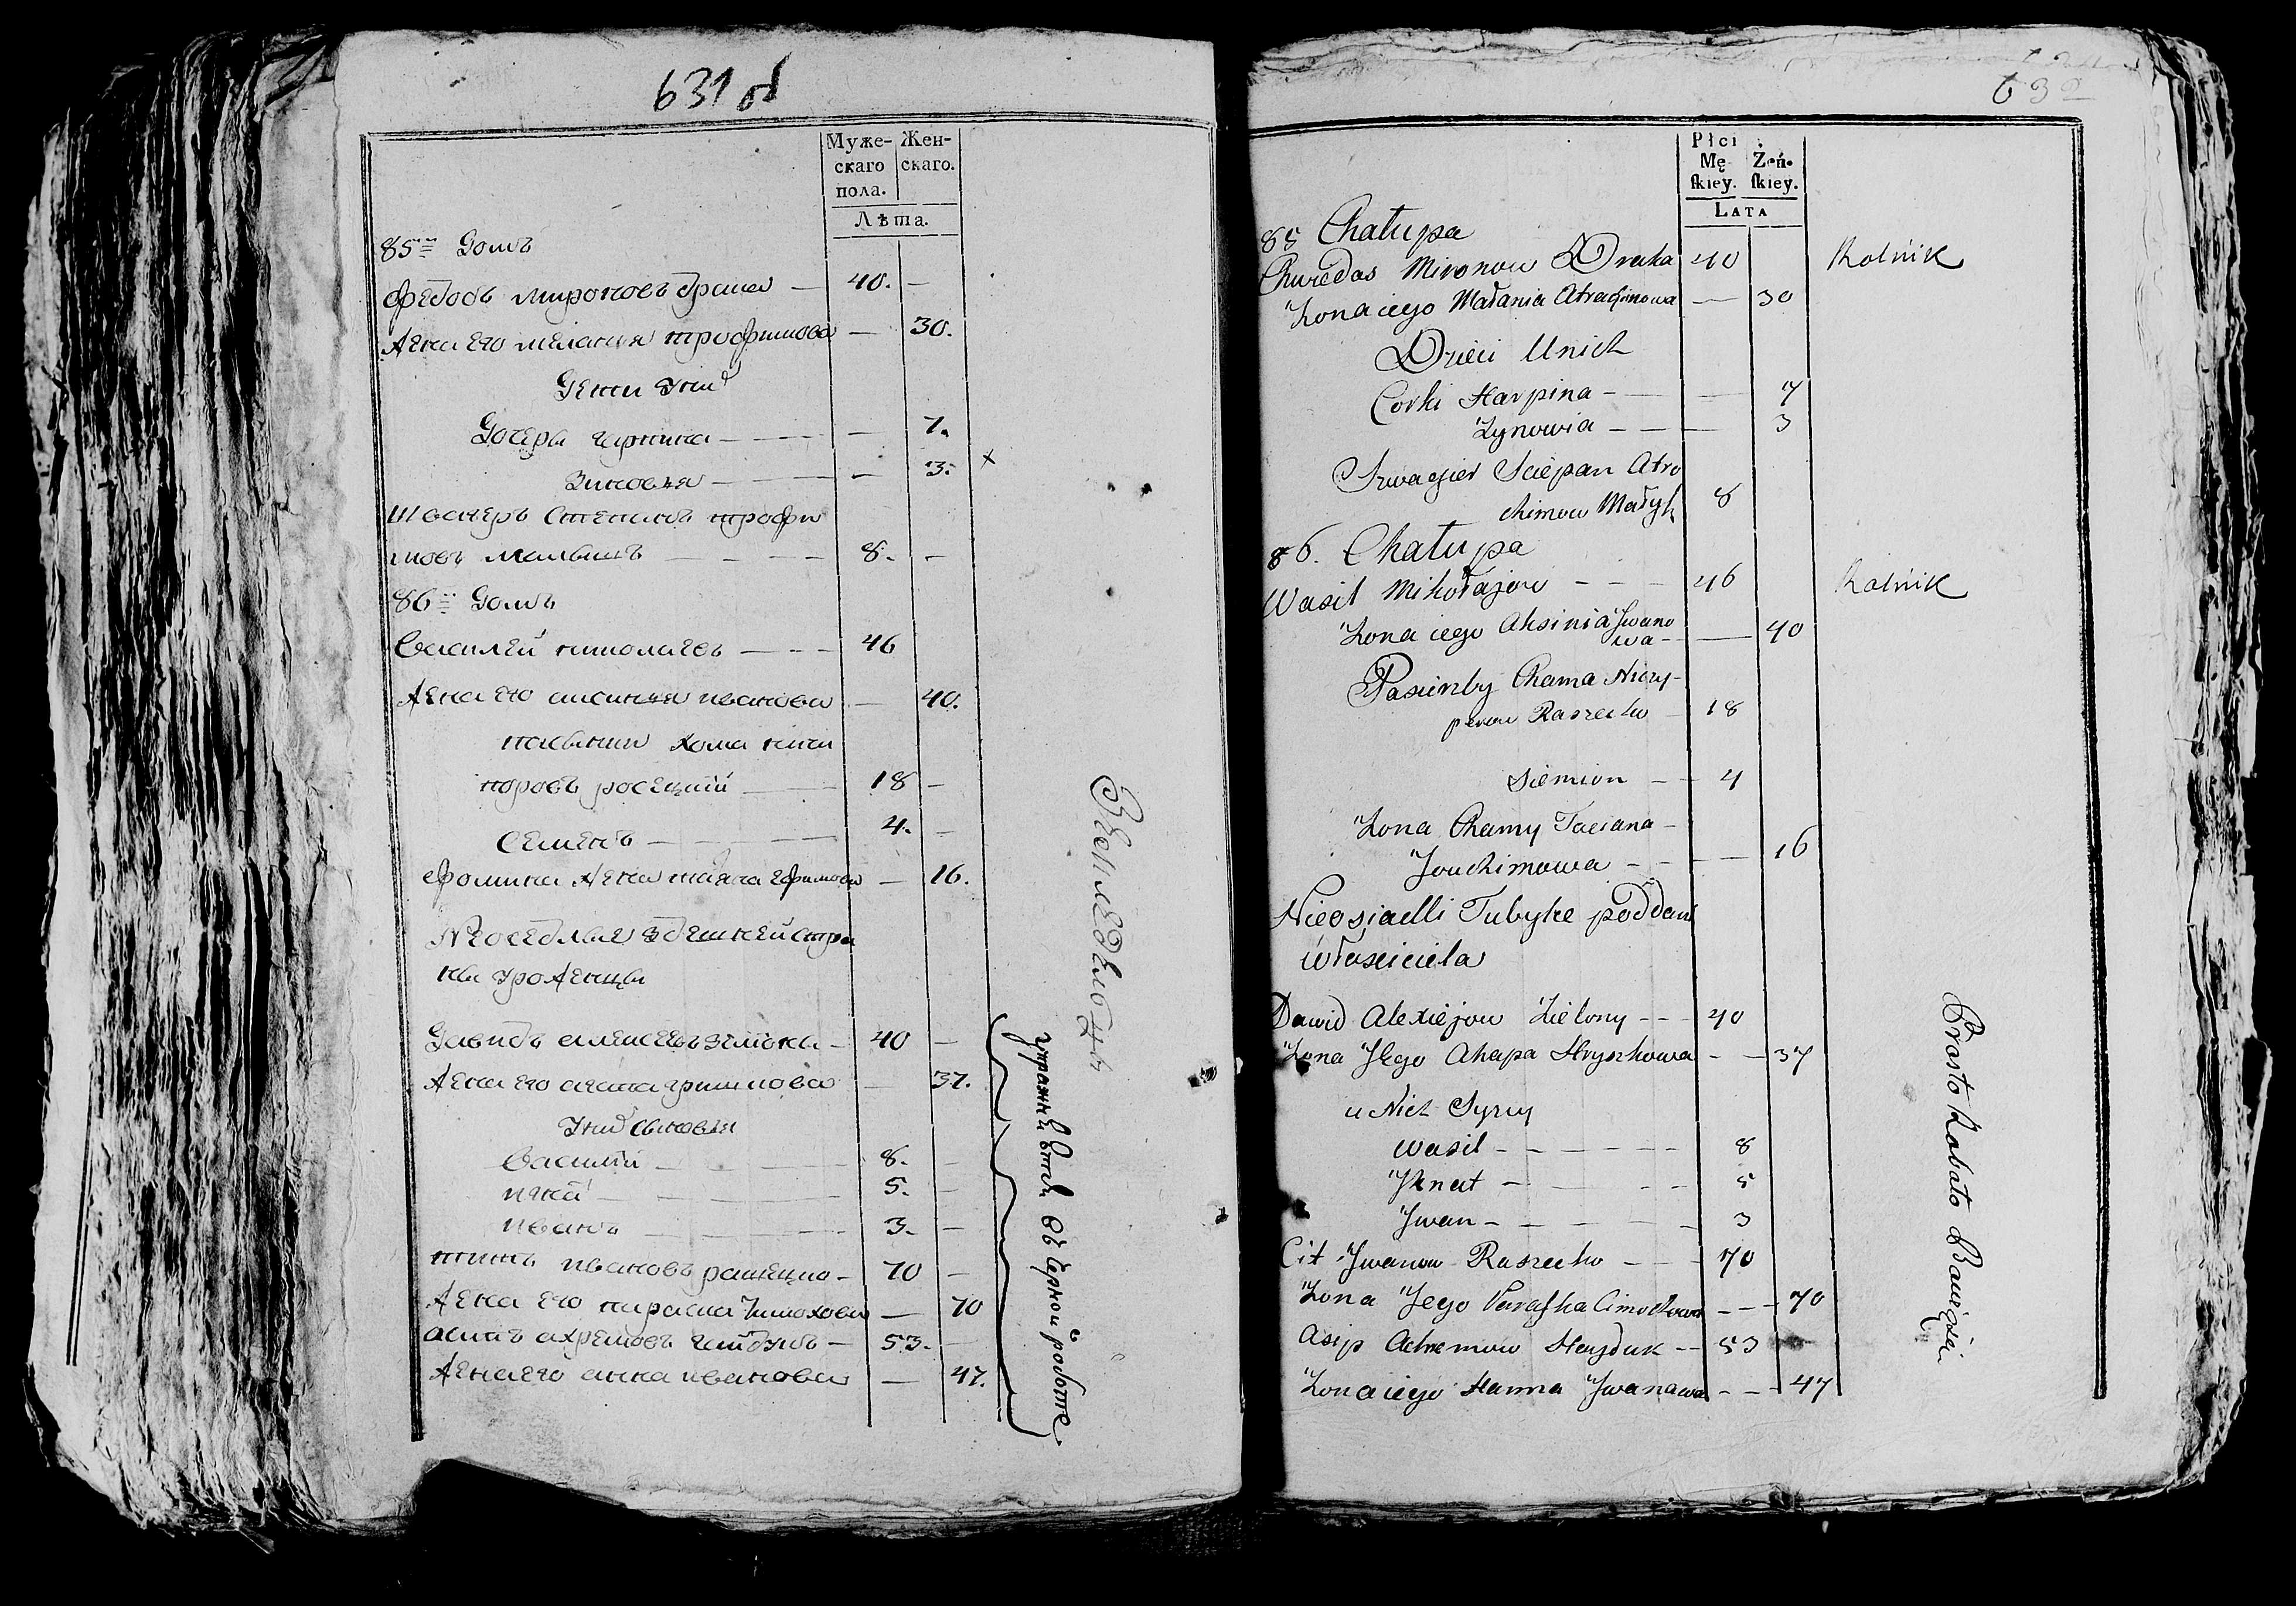 631 об
Муже-
скаго
пола.
Жен-
скаго.
Лѣта.
85 домъ
Федоръ мироновъ драка — 40. —
Жена его меланья трофимова — 30.
Дети у них
Дочеры гарпина — — 7.
Зиновья — — 3. x
Шваگеръ Степанъ трофи
мовъ малышъ — 8. —
86 домъ
Василей николаевъ — 46
Жена его аксинья иванова — 40.
пасынки хома ничи
поровъ росецкий — 18 —
Семенъ — 4. —
Фомина жена татяна ефимова — 16.
Неоседлые здешней стра
ны уроженцы
Давидъ алексеевъ — 40 —
Жена его агапа гришкова — 37.
У них сыновья
Василий — 8. —
5. —
иванъ — 3. —
титъ ивановъ рашецко — 70 —
Жена его параска тимохова — 70
асипъ ахремовъ гайдукъ — 53. —
Жена его анна иванова — 47.
Земледѣлецъ
упражняется въ черной работе
632
Płci
Mę-
skiey.
Żeń-
skiey.
LATA
85 Chałupa
Chwedos Mironow Draka 40 Rolnik
Żona iego Małania Atrachimowa — 30
Dzieci Unich
Corki Harpina — — 7
Zynowia — — 3
Szwagier Sciepan Atro
chimow Małysz 8
86. Chałupa
Wasil Mikołajow — — 46 Rolnik
Żona iego Aksinia Jwano
wa — — 40
Pasierzby Chama Niczy-
perow Raszecko — 18
Siemion — 4
Żona Chamy Taciana —
Jouchimowa — — 16
Nieosiadli Tubylce poddani
właściciela
Dawid Alexiejow Zielony — 40
Żona Jego Ahapa Hryszkowa — 37
u Nich Syny
Wasil — 8
Jhnat — 5
Jwan — 3
Cit Jwanow Raszecko — 70
Żona Jego Paraska Cimochowa — 70
Asip Achremow Hayduk — 53
Żona iego Hanna Jwanawa — 47
Prosto Robato Bawięcsięi